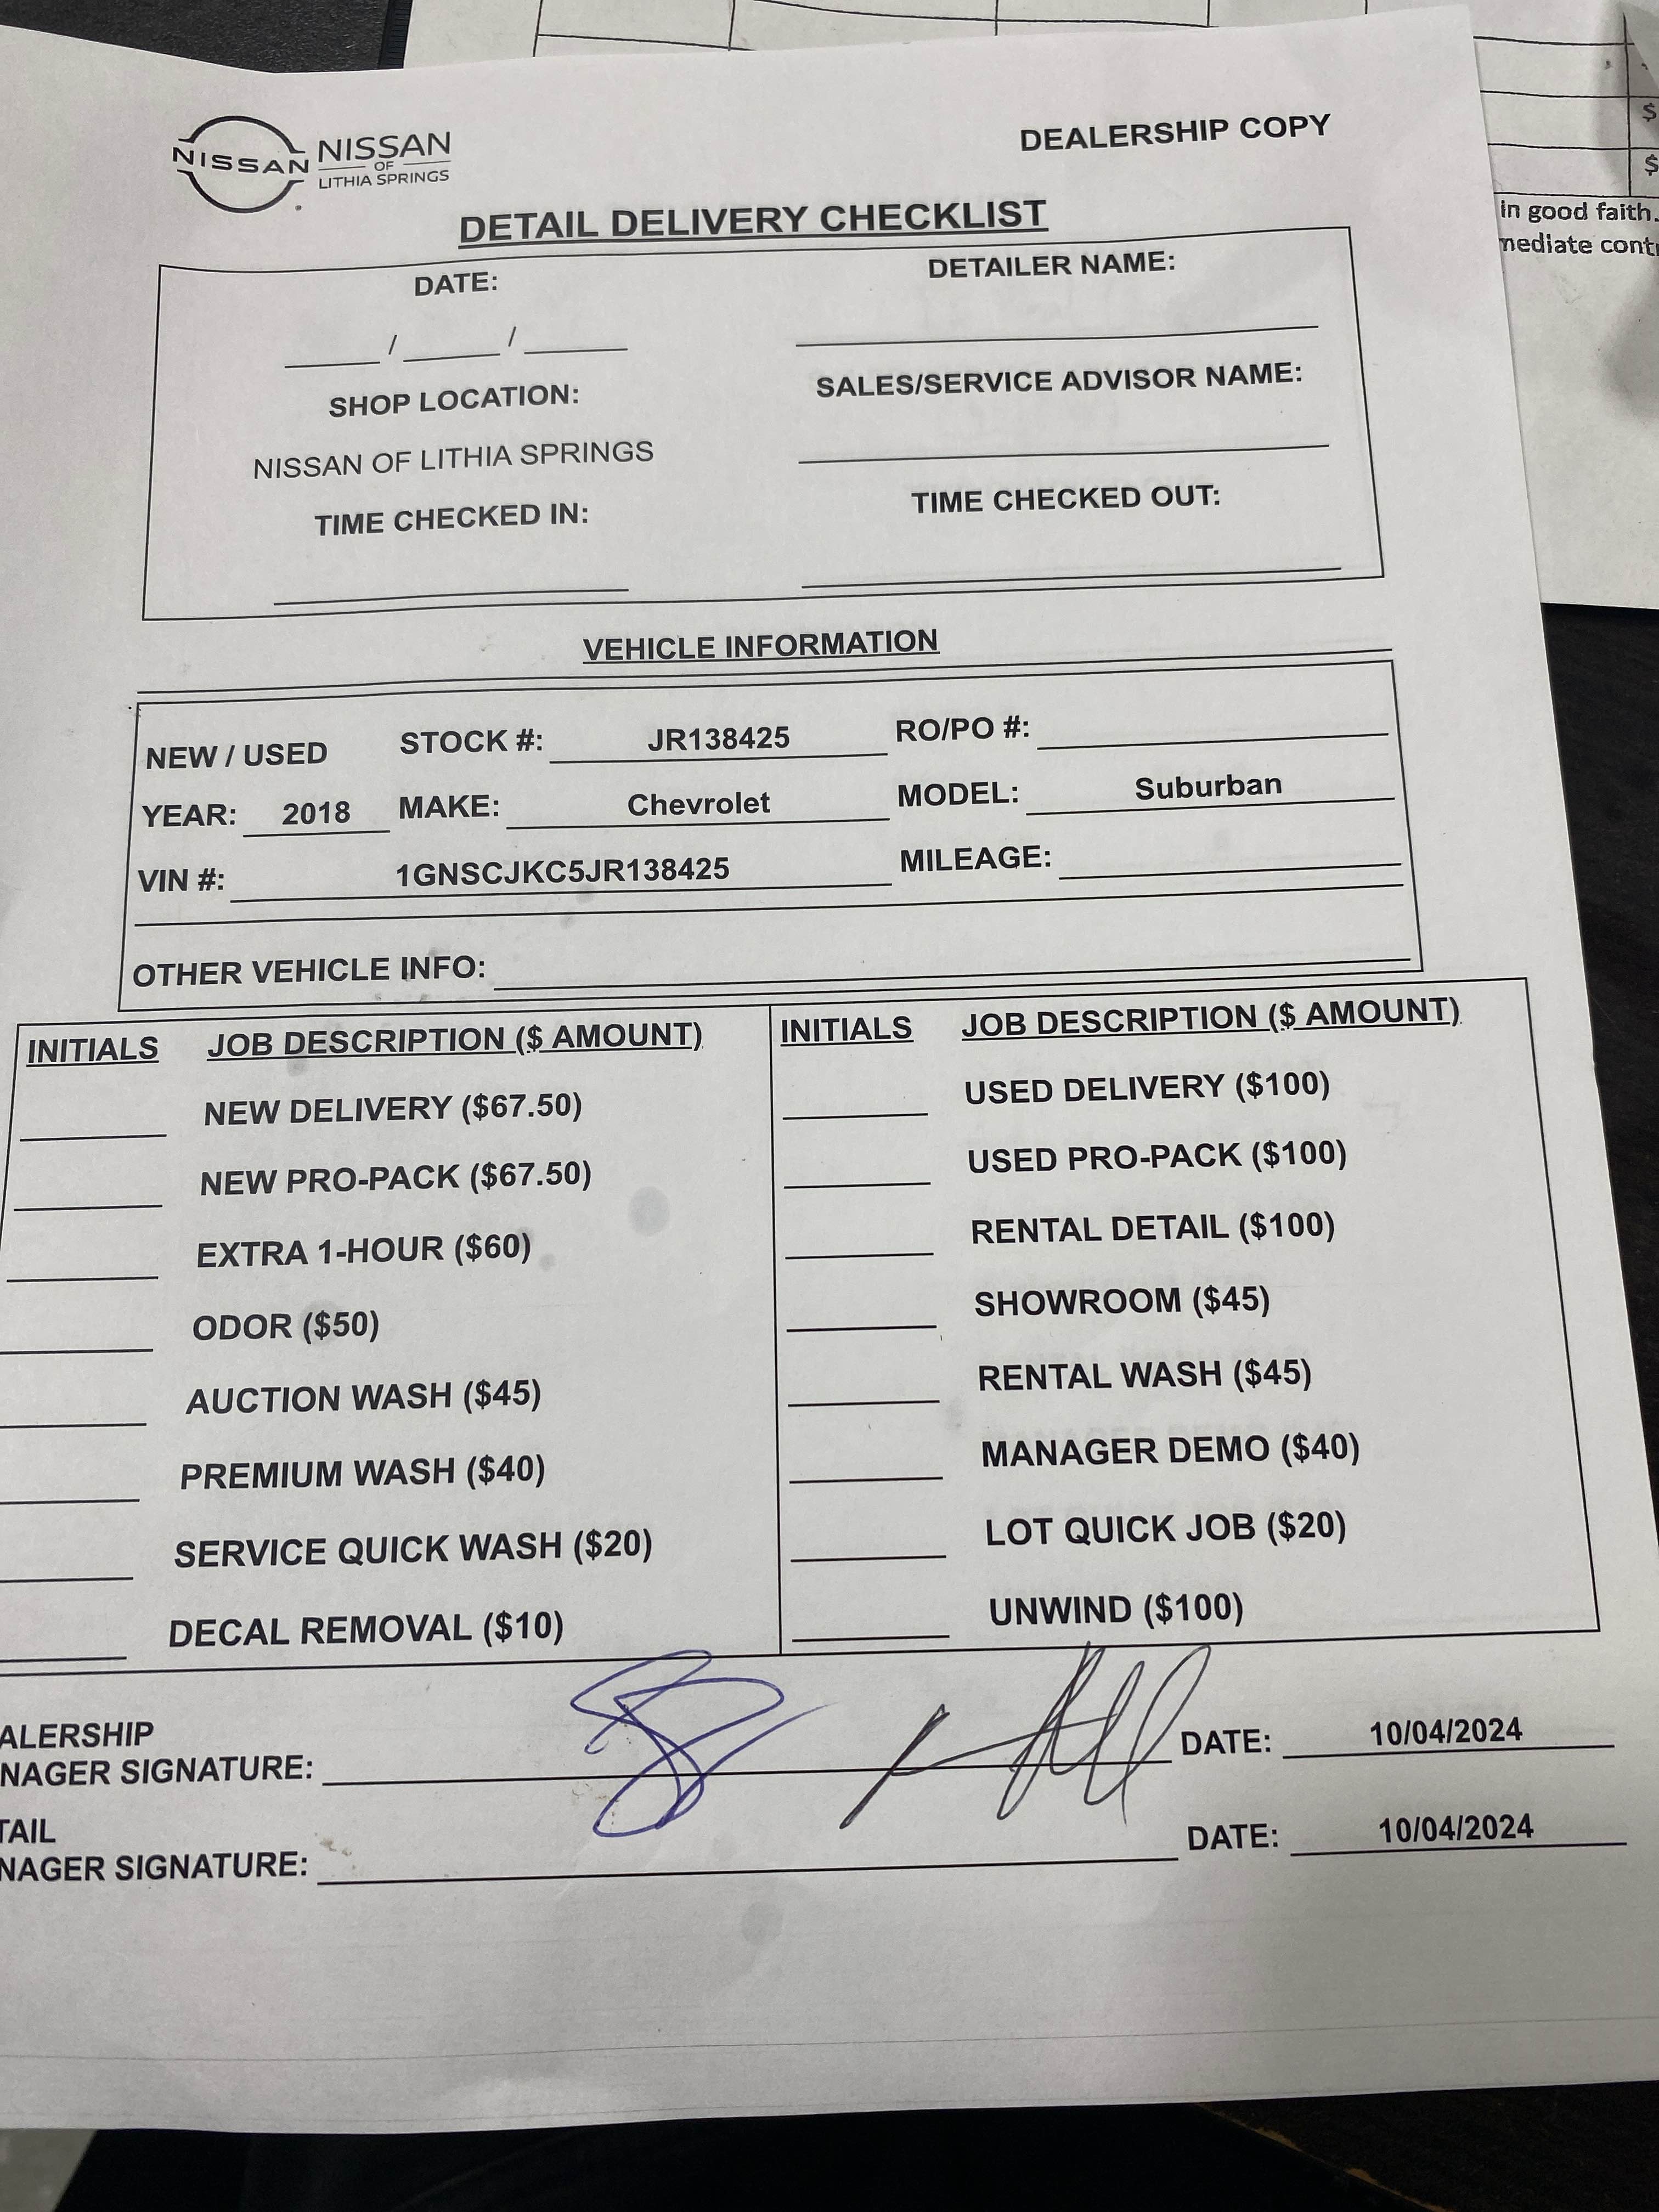 $
$
in good faith.
NISSAN NISSAN
OF
LITHIA SPRINGS
DEALERSHIP COPY
DETAIL DELIVERY CHECKLIST
DATE:
DETAILER NAME:
____/____/____
SHOP LOCATION:
SALES/SERVICE ADVISOR NAME:
NISSAN OF LITHIA SPRINGS
TIME CHECKED IN:
TIME CHECKED OUT:
VEHICLE INFORMATION
NEW / USED STOCK #: JR138425 RO/PO #:
YEAR: 2018 MAKE: Chevrolet MODEL: Suburban
VIN #: 1GNSCJKC5JR138425 MILEAGE:
OTHER VEHICLE INFO:
INITIALS JOB DESCRIPTION ($ AMOUNT)
NEW DELIVERY ($67.50)
NEW PRO-PACK ($67.50)
EXTRA 1-HOUR ($60)
ODOR ($50)
AUCTION WASH ($45)
PREMIUM WASH ($40)
SERVICE QUICK WASH ($20)
DECAL REMOVAL ($10)
INITIALS JOB DESCRIPTION ($ AMOUNT)
USED DELIVERY ($100)
USED PRO-PACK ($100)
RENTAL DETAIL ($100)
SHOWROOM ($45)
RENTAL WASH ($45)
MANAGER DEMO ($40)
LOT QUICK JOB ($20)
UNWIND ($100)
ALERSHIP
NAGER SIGNATURE: DATE: 10/04/2024
TAIL
NAGER SIGNATURE: DATE: 10/04/2024